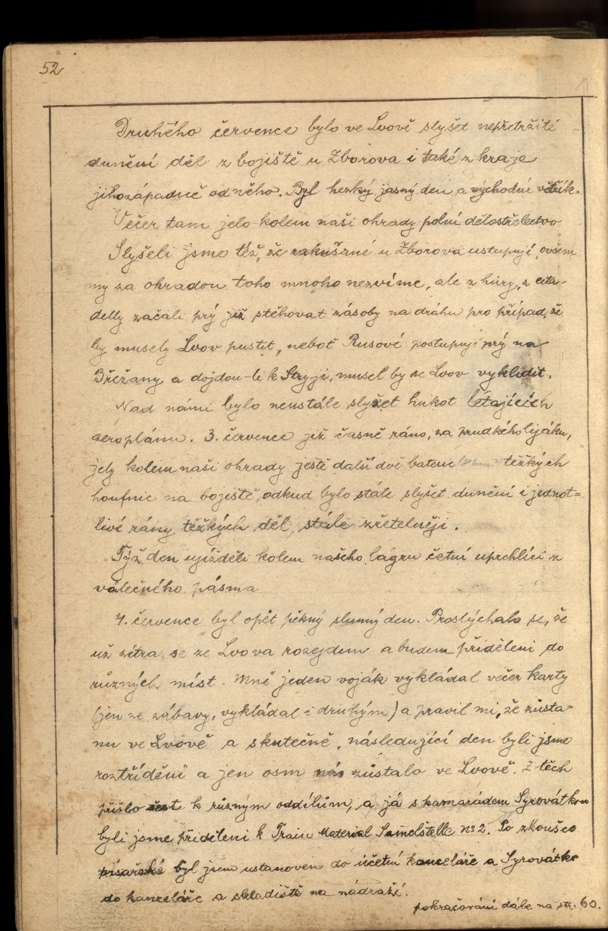 52
Druhého července bylo ve Lvově slyšet nepřetržité
dunění děl z bojiště u Zborova i také z kraje
jihozápadně od něho. Byl hezký jasný den a východní větřík.
Večer tam jelo kolem naší ohrady polní dělostřelectvo
Slyšeli jsme též, že rakušané u Zborova ustupují, ovšem
my za ohradou toho mnoho nezvíme, ale z hůry, z cita-
delly začali prý již stěhovat zásoby na dráhu pro případ, že
by musely Lvov pustit, neboť Rusové postupují prý na
Břežany a dojdou-li k Stryji, musel by se Lvov vyklidit.
Nad námi bylo neustále slyšet hukot létajících
aeroplánů. 3. července již časně ráno, za prudkého lijáku,
jely kolem naší ohrady ještě další dvě baterie těžkých
houfnic na bojiště, odkud bylo stále slyšet dunění i jednot-
livé rány těžkých děl, stále zřetelněji.
Týž den ujížděli kolem našeho lágru četní uprchlíci z
válečného pásma
4. července byl opět pěkný slunný den. Proslýchalo se, že
už zítra se ze Lvova rozejdem a budem přiděleni do
různých míst. Mně jeden voják vykládal večer karty
(jen ze zábavy, vykládal i druhým) a pravil mi, že zůsta-
nu ve Lvově a skutečně, následující den byli jsme
roztříděni a jen osm nás zůstalo ve Lvově. Z těch
přišlo šest k různým oddílům, a já s kamarádem Syrovátkou
byli jsme přiděleni k Train Material Samelstelle No 2. Po zkoušce
písařské byl jsem ustanoven do účetní kanceláře a Syrovátka
do kanceláře a skladiště na nádraží.
pokračování dále na str. 60.